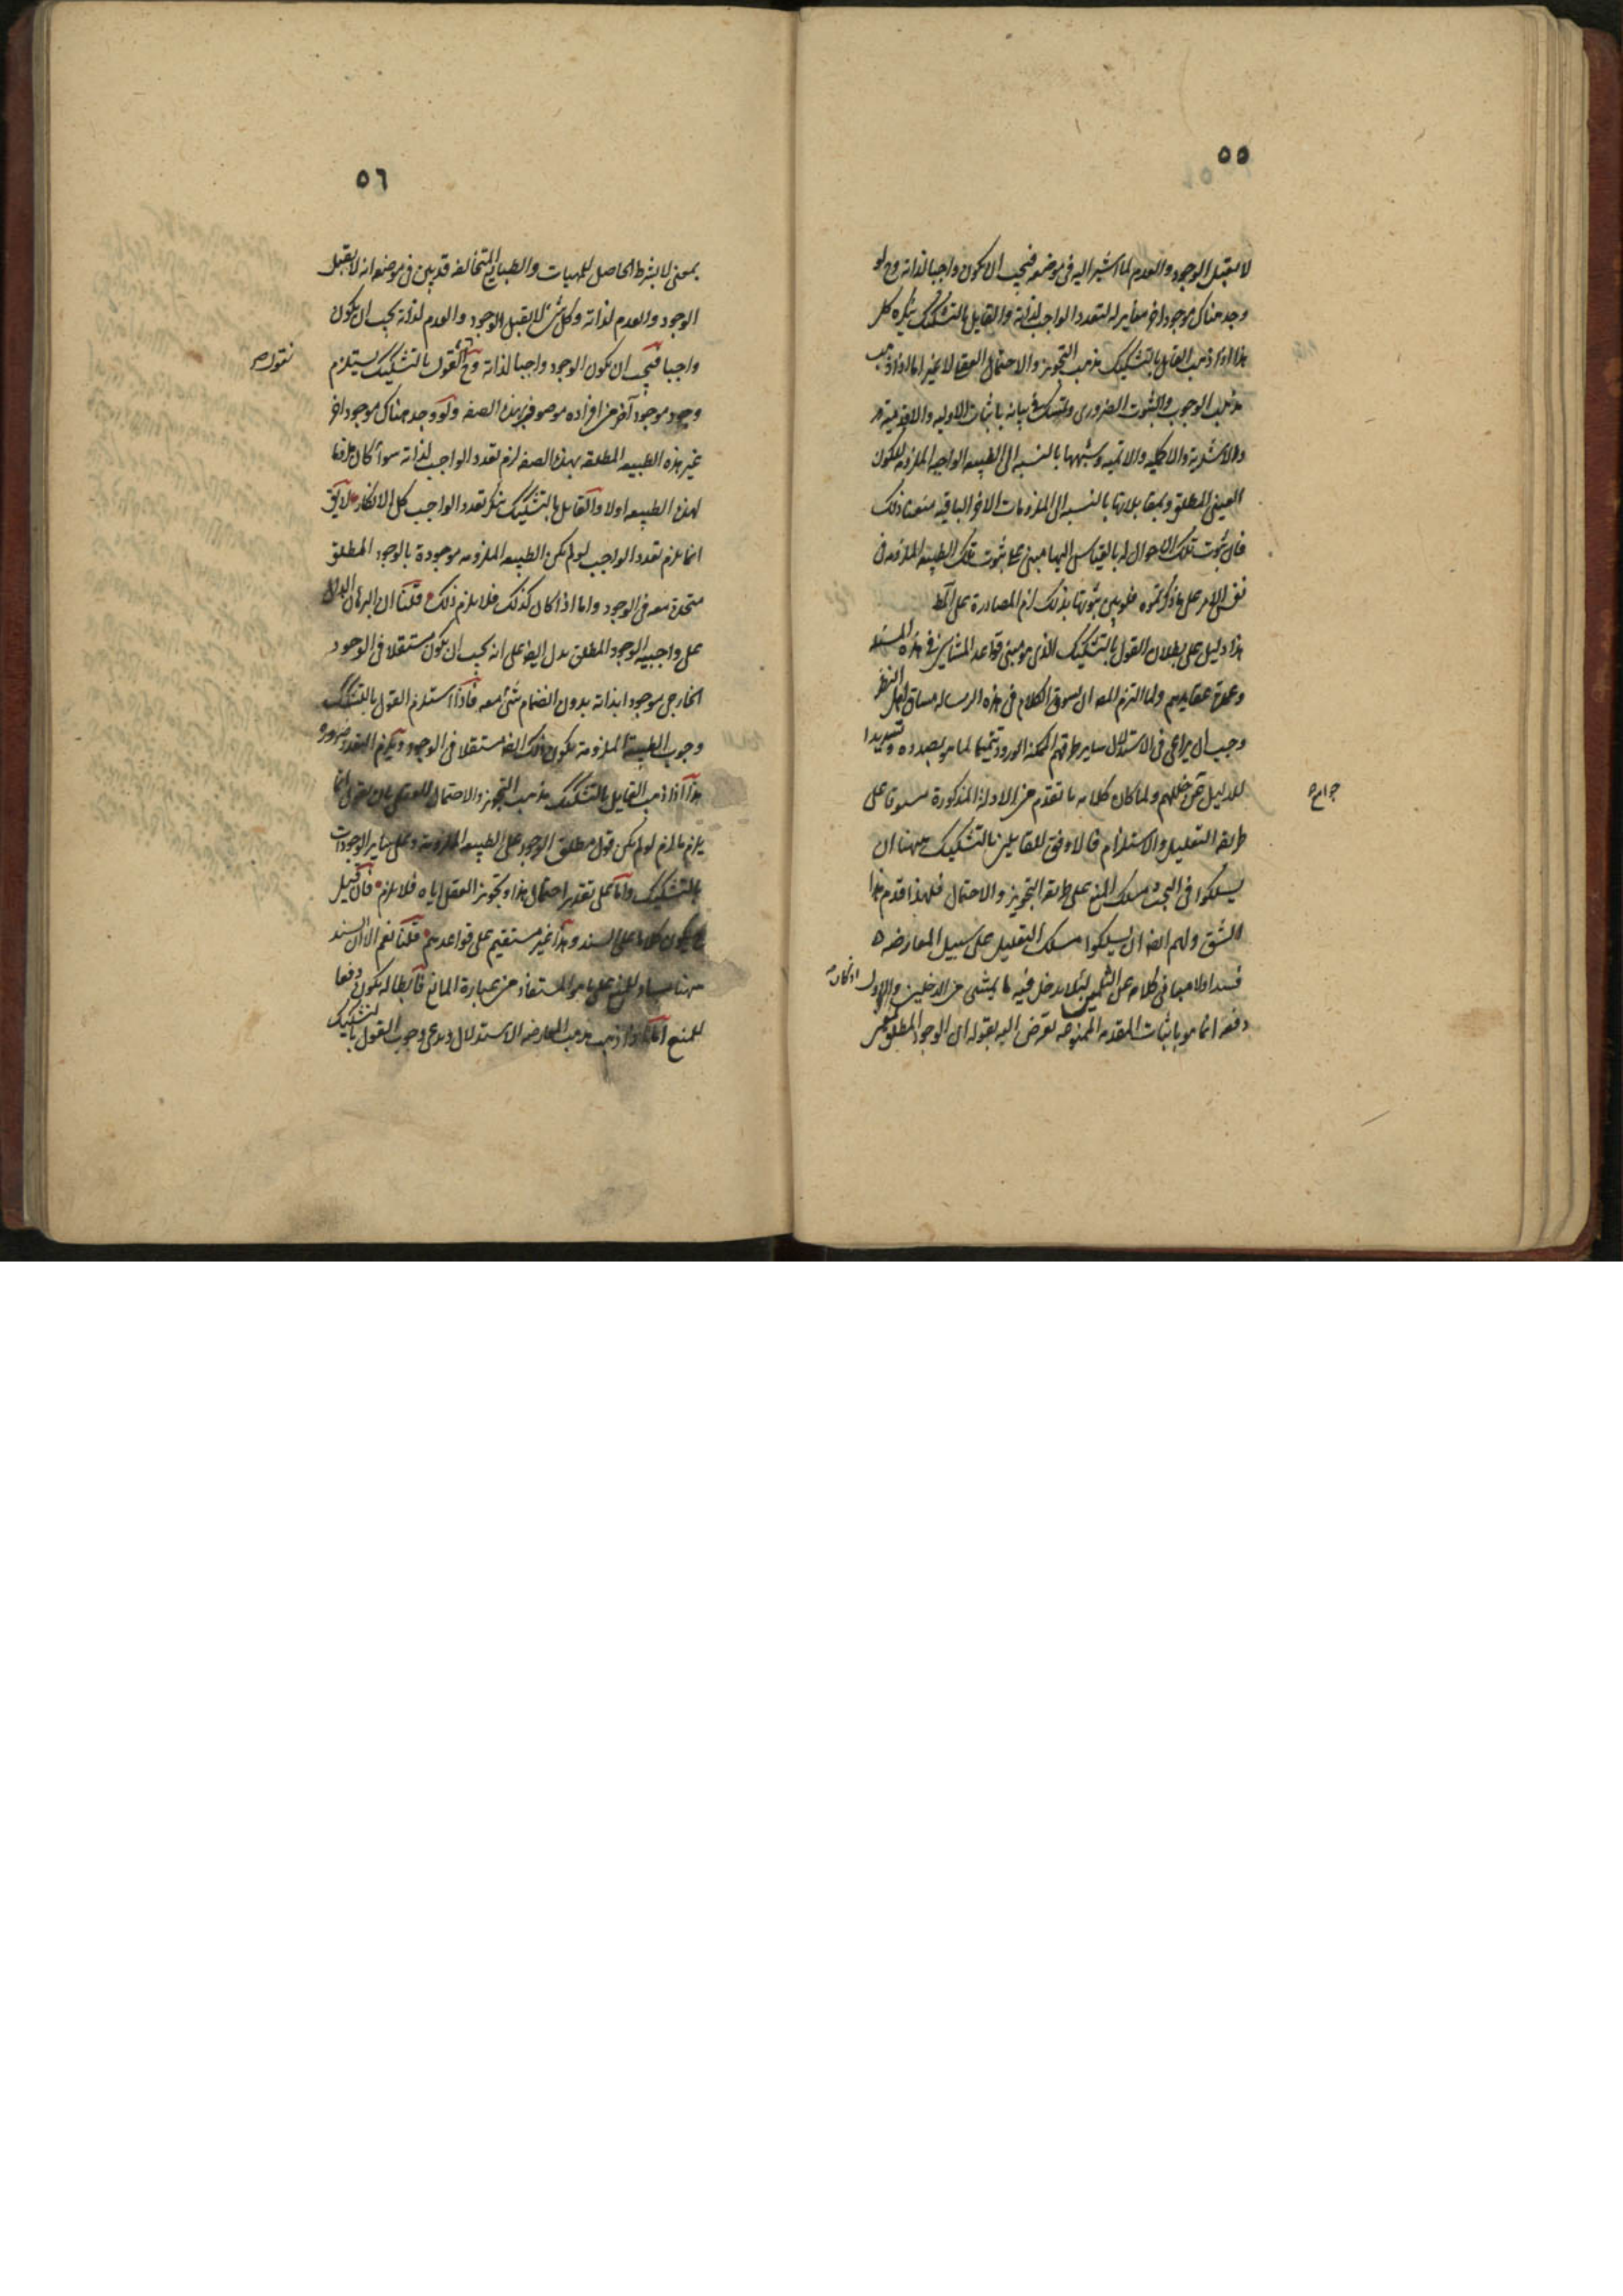 ٥٥
لا يقبل الوجود والعدم لما اشير اليه فى موضعه فيجب ان يكون واجبا لذاته وح لو
وجد هناك موجود اخر مغاير له لتعدد الواجب لذاته والقايل بالتشكيك ينكره كل
هذا اذا ذهب القايل بالتشكيك مذهب التجويز والاحتمال العقلى لا غير اما اذا ذهب
مذهب الوجوب والثبوت الضرورى وتمسك فى بيانه باثبات الاولية والاقدمية
والاشدية والاكملية والاتمية وشبهها بالنسبة الى الطبيعه الواجبه الملزومه للكون
العينى المطلق وبمقابلاتها بالنسبه الى الملزومات الاخر الباقيه منعنا ذلك
فان ثبوت تلك الاحوال له بالقياس اليها مبنى على ثبوت تلك الطبيعه الملزومه فى
نفس الامر على ما ذكرتموه فلو بين ثبوتها بذلك لزم المصادرة على المط
هذا دليل على بطلان القول بالتشكيك الذى هو مبنى قواعد المشائين فى هذه المسئله
وعمدة عقايدهم ولما التزم المص ان يسوق الكلام فى هذه الرساله مساق اهل النظر
وجب ان يراعى فى الاستدلال ساير طرقهم الممكنه الورود تتميما لما هو بصدده وتسديدا
للدليل عن خللهم ولما كان كلامه ما تقدم من الادلة المذكورة مسوقا على
طريقه التعليل والاستلزام فالاوفق للقايلين بالتشكيك ههنا ان
يسلكوا فى البحث مسلك المنع على طريقه التجويز والاحتمال فلهذا قدم هذا
الشق ولهم ايضا ان يسلكوا مسلك التعليل على سبيل المعارضه
دفعه انما هو باثبات المقدمه الممنوعه تعرض اليه بقوله ان الوجود المطلق
٥٦
بمعنى لا بشرط الحاصل للمهيات والطبايع المتخالفه قد بين فى موضعه انه لا يقبل
الوجود والعدم لذاته وكل شئ لا يقبل الوجود والعدم لذاته يجب ان يكون
واجبا فيجب ان يكون الوجود واجبا لذاته وح القول بالتشكيك يستلزم
وجود موجود آخر من افراده موصوف بهذه الصفه ولو وجد هناك موجود اخر
غير هذه الطبيعه المطلقه بهذه الصفه لزم تعدد الواجب لذاته سواء كان ملزوما
لهذه الطبيعه اولا والقايل بالتشكيك ينكر تعدد الواجب كل الانكار لا يق
انما يلزم تعدد الواجب لو لم يكن الطبيعه الملزومه موجودة بالوجود المطلق
متحدة معه فى الوجود واما اذا كان كذلك فلا يلزم ذلك قلنا ان البرهان الدال
على واجبيه الوجود المطلق يدل ايضا على انه يجب ان يكون مستقلا فى الوجود
الخارجى موجودا بذاته بدون انضمام شئ معه فاذا استلزم القول بالتشكيك
وجوب الطبيعة الملزومة يكون ذلك ايضا مستقلا فى الوجود ويلزم التعدد ضرورة
هذا اذا ذهب القايل بالتشكيك مذهب التجويز والاحتمال العقلى بان يقول انما
يلزم ما لزم لو لم يكن قول مطلق الوجود على الطبيعه الملزومة وعلى ساير الوجودات
بالتشكيك واما على تقدير احتمال هذا وتجويز العقل اياه فلا يلزم فان قيل
يكون كلاما على السند وهذا غير مستقيم على قواعدهم قلنا نعم الا ان السند
ههنا مساو للمنع على ما هو المستفاد من عبارة المانع فابطاله يكون دفعا
للمنع اما اذا ذهب مذهب المعارضه للاستدلال ويدعى وجوب القول بالتشكيك